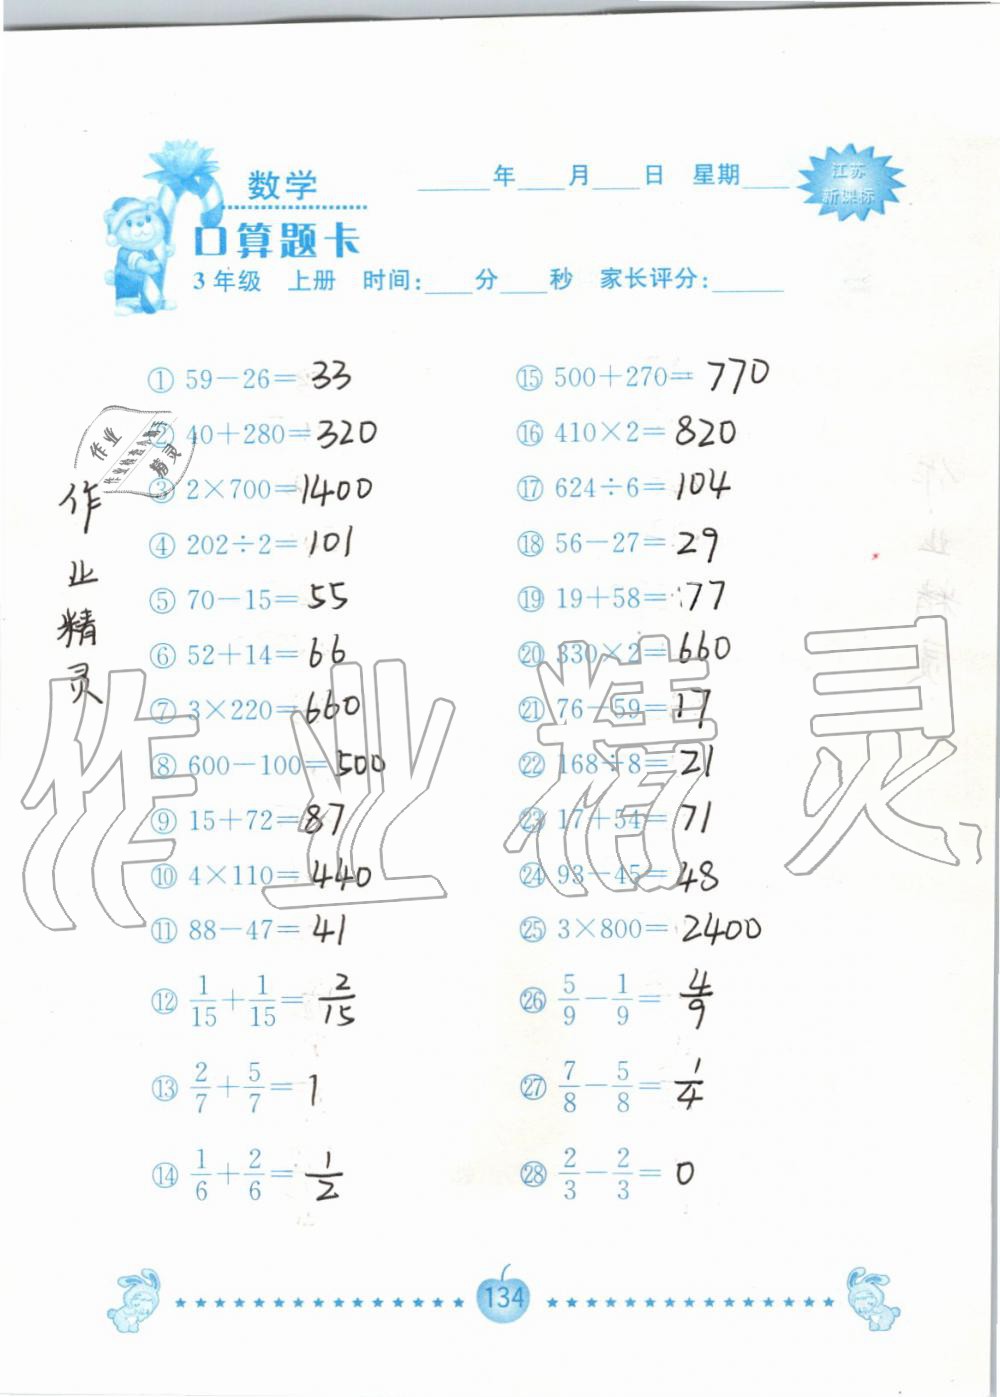 数学
____年____月____日 星期____
江苏
新课标
口算题卡
3年级 上册 时间:____分____秒 家长评分:______
① 59-26=33
② 40+280=320
③ 2×700=1400
④ 202÷2=101
⑤ 70-15=55
⑥ 52+14=66
⑦ 3×220=660
⑧ 600-100=500
⑨ 15+72=87
⑩ 4×110=440
⑪ 88-47=41
⑫ 1/15+1/15=2/15
⑬ 2/7+5/7=1
⑭ 1/6+2/6=1/2
⑮ 500+270=770
⑯ 410×2=820
⑰ 624÷6=104
⑱ 56-27=29
⑲ 19+58=77
⑳ 330×2=660
㉑ 76-59=17
㉒ 168÷8=21
㉓ 17+54=71
㉔ 93-45=48
㉕ 3×800=2400
㉖ 5/9-1/9=4/9
㉗ 7/8-5/8=1/4
㉘ 2/3-2/3=0
作业
精灵
作业精灵
作业精灵
134